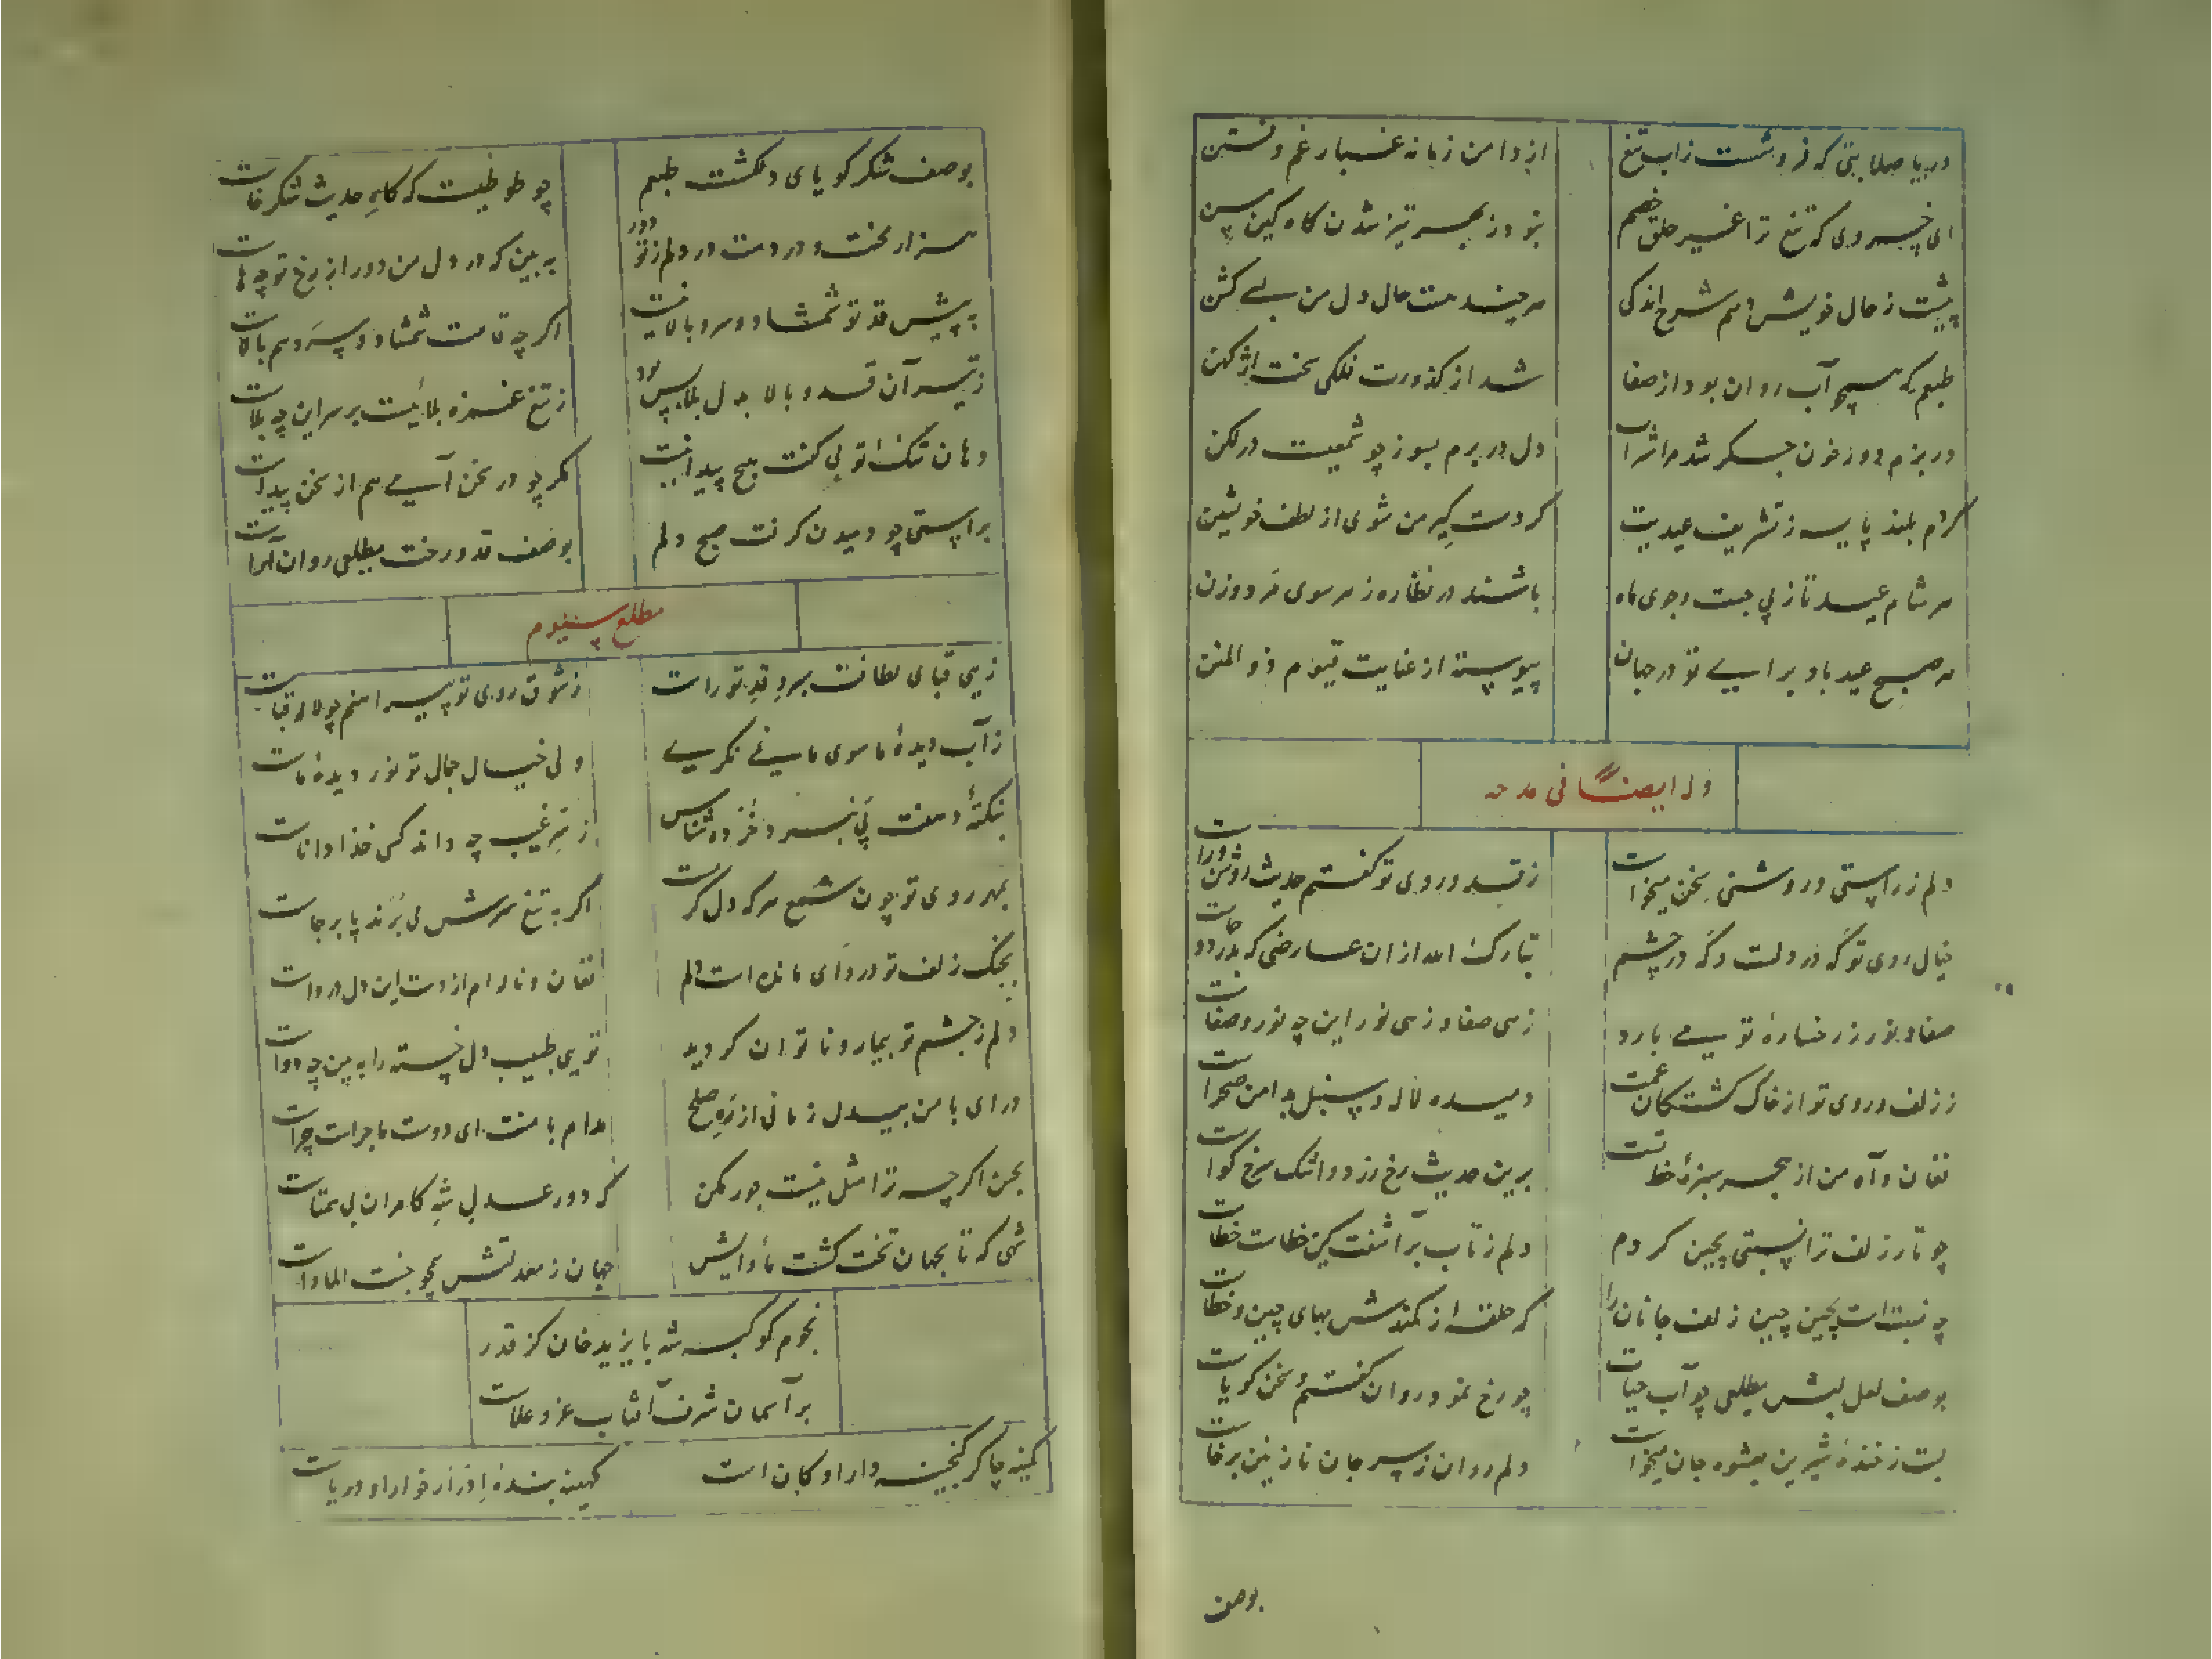 دریا صلابتی که فرو شست ز آب تیغ
از دامن زمانه غبار غم و فتن
ای خسروی که تیغ ترا غیر حلق خصم
نبود ز بهر تیز شدن گاه کین مسن
پیشت ز حال خویش دهم شرح اندکی
هر چند هست حال دل من بسی کشن
طبعم که همچو آب روان بود از صفا
شد از کدورت فلکی سخت
در بزم دور خون جگر شد مرا شراب
دل در برم بسوز چو شمعیست در لکن
گردم بلند پایه ز تشریف عیدیت
گر دست گیر من شوی از لطف خویشتن
هر شام عید تا ز پی جست وجوی ماه
باشند در نظاره ز هر سوی مرد و زن
هر صبح عید باد برای تو در جهان
پیوسته از عنایت قیوم ذو المنن
وله ایضا فی مدحه
دلم ز راستی و روشنی سخن میخواست
ز قد و روی تو گفتم حدیث روشن و راست
خیال روی تو گه در دلست و گه در چشم
تبارک الله از ان عارضی که
صفا و نور ز رخساره تو می بارد
زهی صفا و زهی نور این چه نور و صفاست
ز زلف و روی تو از خاک کشتگان غمت
دمیده لاله و سنبل بدامن صحراست
فغان و آه من از هجر سبزه خطتست
برین حدیث رخ زرد و اشک سرخ گواست
چو تار زلف ترا نسبتی بچین کردم
دلم ز تاب بر آشفت کین خطاست خطاست
چه نسبت است بچین چین زلف جانان را
که حلقه از کمندش بهای چین و خطاست
بوصف لعل لبش مطلعی چو آب حیات
چو رخ نمود روان گفتم و سخن گویاست
لبت ز خنده شیرین بعشوه جان میخواست
دلم روان ز سر جان نازنین برخاست
بوصف
بوصف شکر گویای دلکشت طبعم
چو طوطیست که کامی حدیث شکر خاست
هزار محنت و دردست در دلم ز تو دور
به بین که در دل من دور از رخ تو چهاست
به پیش قد تو شمشاد و سرو بالا نیست
اگر چه قامت شمشاد و سرو هم بالاست
ز تیر آن قد و بالا بدل بلا بس بود
ز تیغ غمزه بلائیست بر سر این چه بلاست
دهان تنگ تو بی گفت هیچ پیدا نیست
مگر چو در سخن آیی هم از سخن پیداست
براستی چو دمیدن گرفت صبح دلم
بوصف قد و رخت مطلعی روان آراست
مطلع سیوم
زهی قبای لطافت بسرو قد تو راست
ز شوق روی تو پیراهنم چو لاله قباست
ز آب دیده ما سوی ما نمی نگری
ولی خیال جمال تو نور دیده ماست
بنکته دهنت پی نبرد خرده شناس
ز سر غیب چه داند کسی خدا داناست
بمهر روی تو چون شمع هر که دل گرمست
اگر به تیغ سرش می برند پا برجاست
بچنگ زلف تو در وای مانده است دلم
فغان و ناله ام از دست این دل درواست
دلم ز چشم تو بیمار و ناتوان گردید
تویی طبیب دل خسته را به بین چه دواست
در ای با من بیدل زمانی از ره صلح
مدام با منت ای دوست ماجرا چراست
بحسن اگر چه ترا مثل نیست جور مکن
که دور عدل شه کامران بی همتاست
شهی که تا بجهان تخت گشت مأوایش
جهان ز معدلتش همچو جنت الماواست
نجوم کوکبه شه بایزید خان کز قدر
بر آسمان شرف آفتاب عز و علاست
کمینه چاکر گنجینه دار او کان است
کهینه بنده ادرار خوار او دریاست